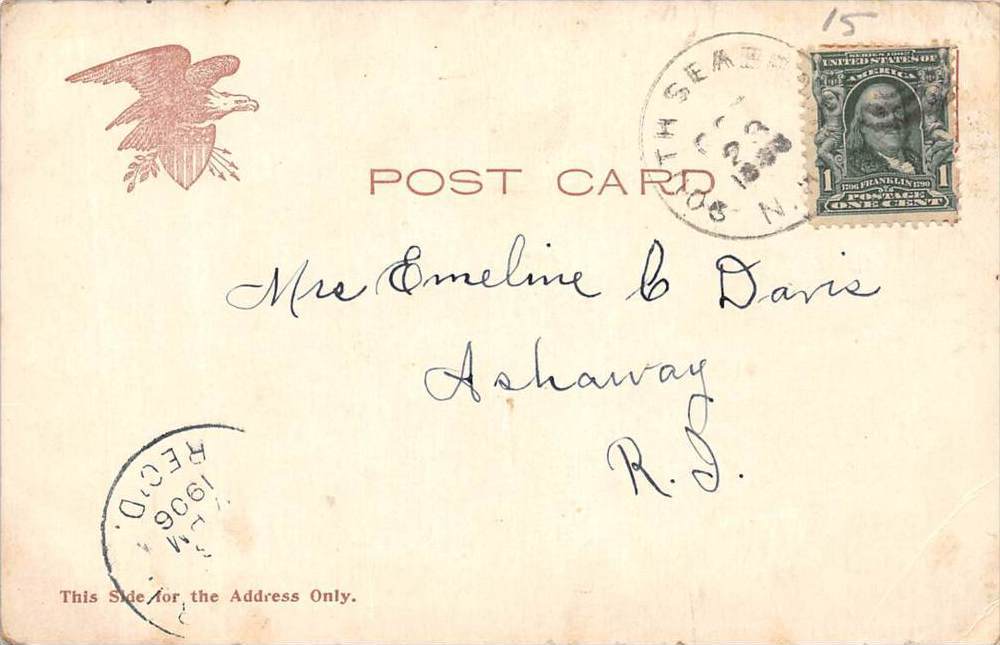 15
SOUTH SEA
22
N.
SERIES 1902
UNITED STATES OF
AMERICA
1 1706 FRANKLIN 1790 1
POSTAGE
ONE CENT
POST CARD
Mrs Emeline C Davis
Ashaway
R. I.
REC'D.
1906
M
This Side for the Address Only.